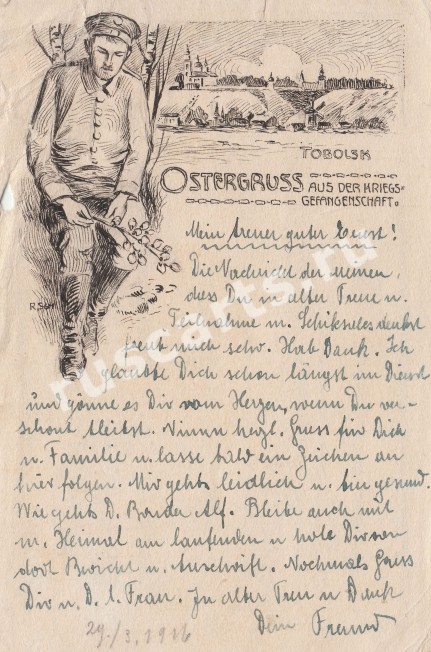 TOBOLSK
OSTERGRUSS AUS DER KRIEGS-
GEFANGENSCHAFT.
Mein treuer guter Ernst!
Die Nachricht der meinen,
dass Du in alter Treue u.
Teilnahme m. Schiksales denkst
freut mich sehr. Hab Dank. Ich
glaubte Dich schon längst im Dienst
und gönne es Dir vom Herzen, wenn Du ver-
schont bleibst. Nimm herzl. Gruss für Dich
u. Familie u. lasse bald ein Zeichen an
hier folgen. Mir gehts leidlich u. bin gesund.
Wie gehts D. Bruder Alf. Bleibe auch mit
m. Heimat am laufenden u. hole Dir von
dort Bericht u. Anschrift. Nochmals Gruss
Dir u. D. l. Frau. In alter Treu u. Dank
Dein Freund
29./3.1916
ruscarts.ru